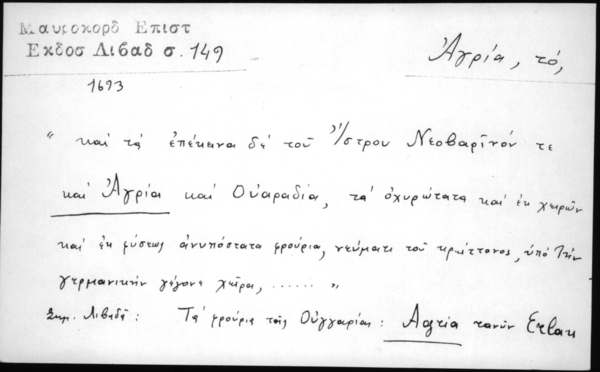 Μαυροκορδ Επιστ
Εκδοσ Λιβαδ σ. 149
Ἀγρία, τό,
1693
" καὶ τὰ ἐπέκεινα δὲ τοῦ Ἴστρου Νεοβαρῖνόν τε
καὶ Ἀγρία καὶ Οὐαραδία, τὰ ὀχυρώτατα καὶ ἐκ χειρῶν
καὶ ἐκ φύσεως ἀνυπόστατα φρούρια, νεύματι τοῦ κρείττονος, ὑπὸ τὴν
γερμανικὴν γέγονε χεῖρα, ...... "
Σημ. Λιβαδᾶ: Τὰ φρούρια τῆς Οὐγγαρίας: